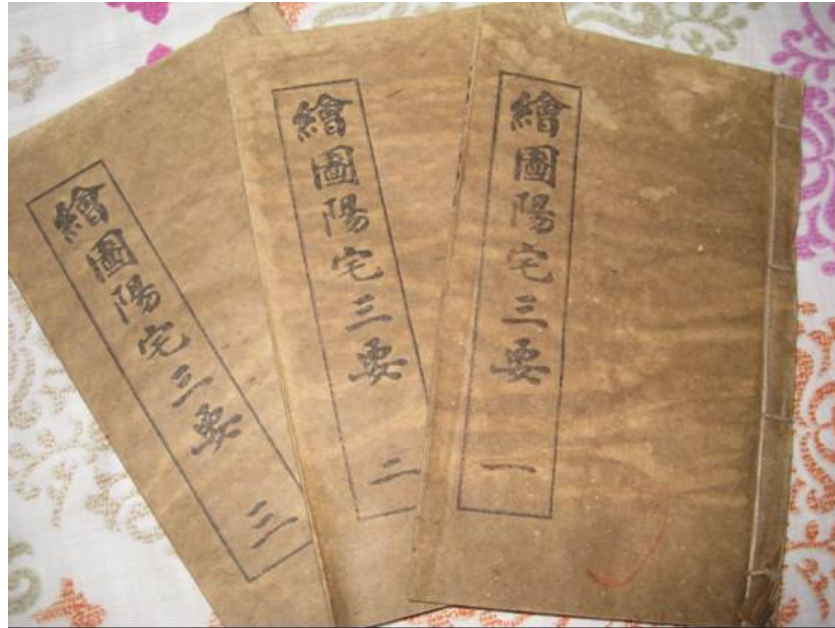 繪圖陽宅三要 一
繪圖陽宅三要 二
繪圖陽宅三要 三